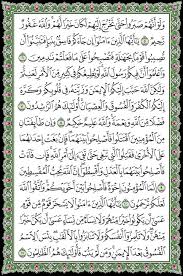 وَلَوْ أَنَّهُمْ صَبَرُوا۟ حَتَّىٰ تَخْرُجَ إِلَيْهِمْ لَكَانَ خَيْرًا لَّهُمْ وَٱللَّهُ غَفُورٌ
رَّحِيمٌ ٥ يَٰٓأَيُّهَا ٱلَّذِينَ ءَامَنُوٓا۟ إِن جَآءَكُمْ فَاسِقٌۢ بِنَبَإٍ فَتَبَيَّنُوٓا۟ أَن
تُصِيبُوا۟ قَوْمًۢا بِجَهَٰلَةٍ فَتُصْبِحُوا۟ عَلَىٰ مَا فَعَلْتُمْ نَٰدِمِينَ ٦
وَٱعْلَمُوٓا۟ أَنَّ فِيكُمْ رَسُولَ ٱللَّهِ لَوْ يُطِيعُكُمْ فِى كَثِيرٍ مِّنَ ٱلْأَمْرِ لَعَنِتُّمْ
وَلَٰكِنَّ ٱللَّهَ حَبَّبَ إِلَيْكُمُ ٱلْإِيمَٰنَ وَزَيَّنَهُۥ فِى قُلُوبِكُمْ وَكَرَّهَ
إِلَيْكُمُ ٱلْكُفْرَ وَٱلْفُسُوقَ وَٱلْعِصْيَانَ أُو۟لَٰٓئِكَ هُمُ ٱلرَّٰشِدُونَ ٧
فَضْلًا مِّنَ ٱللَّهِ وَنِعْمَةً وَٱللَّهُ عَلِيمٌ حَكِيمٌ ٨ وَإِن طَآئِفَتَانِ
مِنَ ٱلْمُؤْمِنِينَ ٱقْتَتَلُوا۟ فَأَصْلِحُوا۟ بَيْنَهُمَا فَإِنۢ بَغَتْ إِحْدَىٰهُمَا
عَلَى ٱلْأُخْرَىٰ فَقَٰتِلُوا۟ ٱلَّتِى تَبْغِى حَتَّىٰ تَفِىٓءَ إِلَىٰٓ أَمْرِ ٱللَّهِ فَإِن
فَآءَتْ فَأَصْلِحُوا۟ بَيْنَهُمَا بِٱلْعَدْلِ وَأَقْسِطُوٓا۟ إِنَّ ٱللَّهَ يُحِبُّ
ٱلْمُقْسِطِينَ ٩ إِنَّمَا ٱلْمُؤْمِنُونَ إِخْوَةٌ فَأَصْلِحُوا۟ بَيْنَ أَخَوَيْكُمْ وَٱتَّقُوا۟ ٱللَّهَ
لَعَلَّكُمْ تُرْحَمُونَ ١٠ يَٰٓأَيُّهَا ٱلَّذِينَ ءَامَنُوا۟ لَا يَسْخَرْ قَوْمٌ مِّن قَوْمٍ
عَسَىٰٓ أَن يَكُونُوا۟ خَيْرًا مِّنْهُمْ وَلَا نِسَآءٌ مِّن نِّسَآءٍ عَسَىٰٓ أَن يَكُنَّ خَيْرًا
مِّنْهُنَّ وَلَا تَلْمِزُوٓا۟ أَنفُسَكُمْ وَلَا تَنَابَزُوا۟ بِٱلْأَلْقَٰبِ بِئْسَ ٱلِٱسْمُ
ٱلْفُسُوقُ بَعْدَ ٱلْإِيمَٰنِ وَمَن لَّمْ يَتُبْ فَأُو۟لَٰٓئِكَ هُمُ ٱلظَّٰلِمُونَ ١١